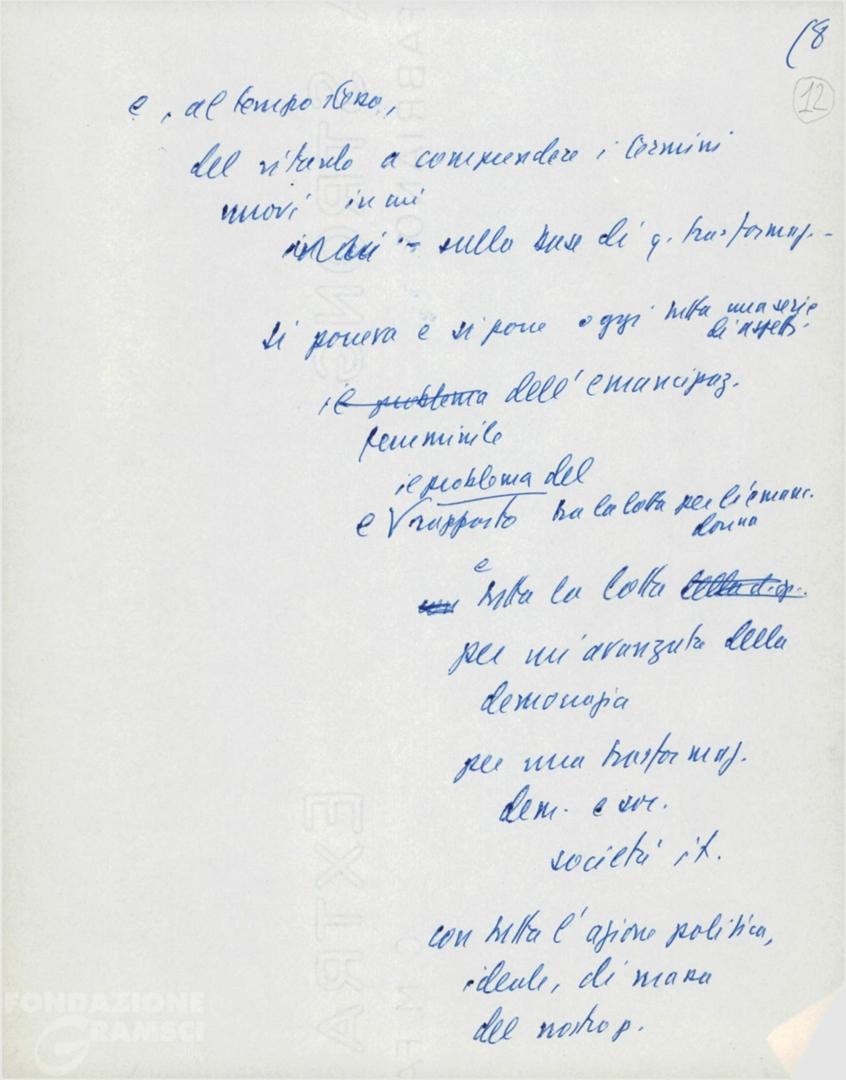 (8
12
e, al tempo stesso,
del ritardo a comprendere i termini
nuovi in cui
in cui - sulla base di q. trasformaz. -
si poneva e si pone oggi tutta una serie
di aspetti
il problema dell'emancipaz.
femminile
il problema del
e rapporto tra la lotta per l'emanc.
donna
e
con tutta la lotta
per un'avanzata della
democrazia
per una trasformaz.
dem. e soc.
società it.
con tutta l'azione politica,
ideale, di massa
del nostro p.
FABRIANO
EXTRA STRONG
FONDAZIONE
GRAMSCI